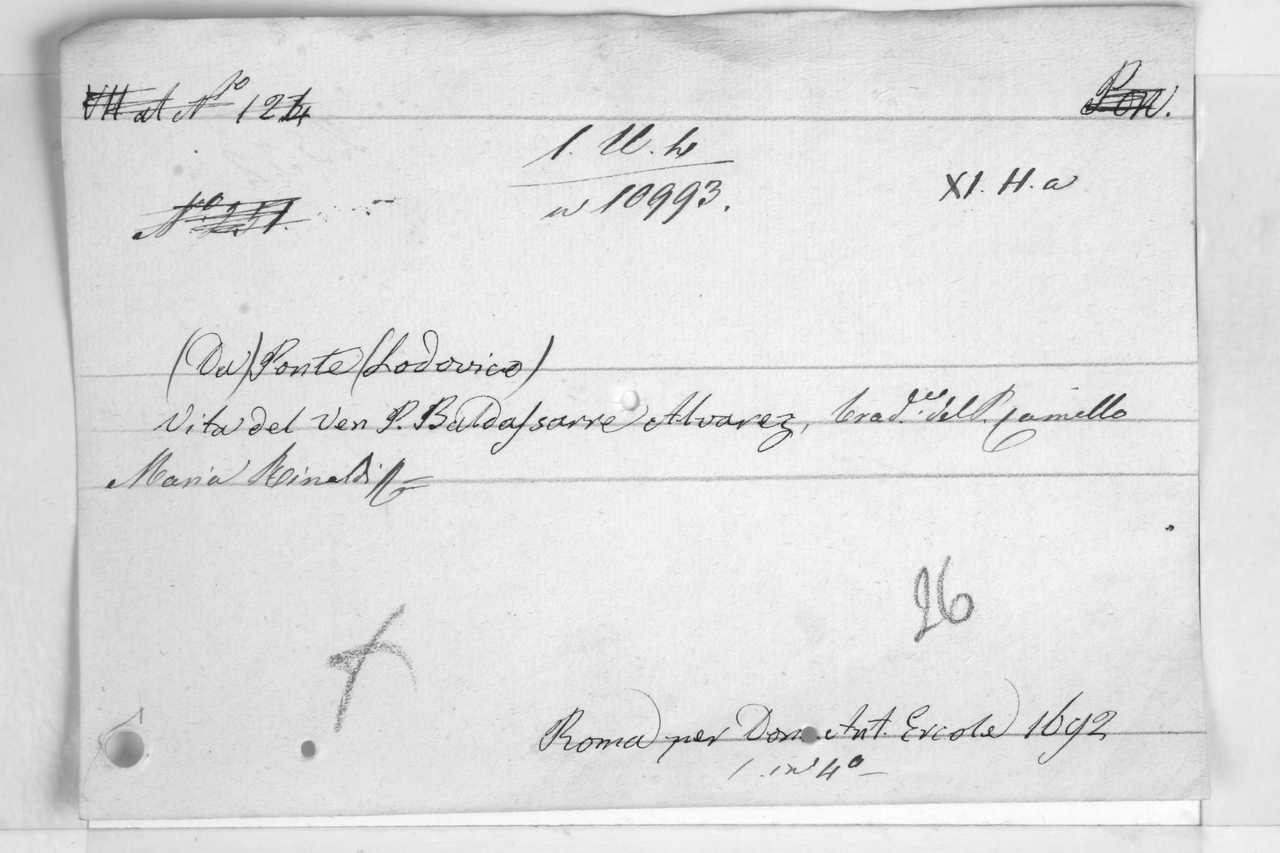 VII at N.º 124
Pon.
1. U. h
XI. H. a
N.º 251.
n 10993.
(Da) Ponte (Lodovico)
Vita del Ven P. Baldassarre Alvarez, trad.ta del P. Camillo
Maria Rinaldi
26
Roma per Dom Ant. Ercole 1692
1. in 4º